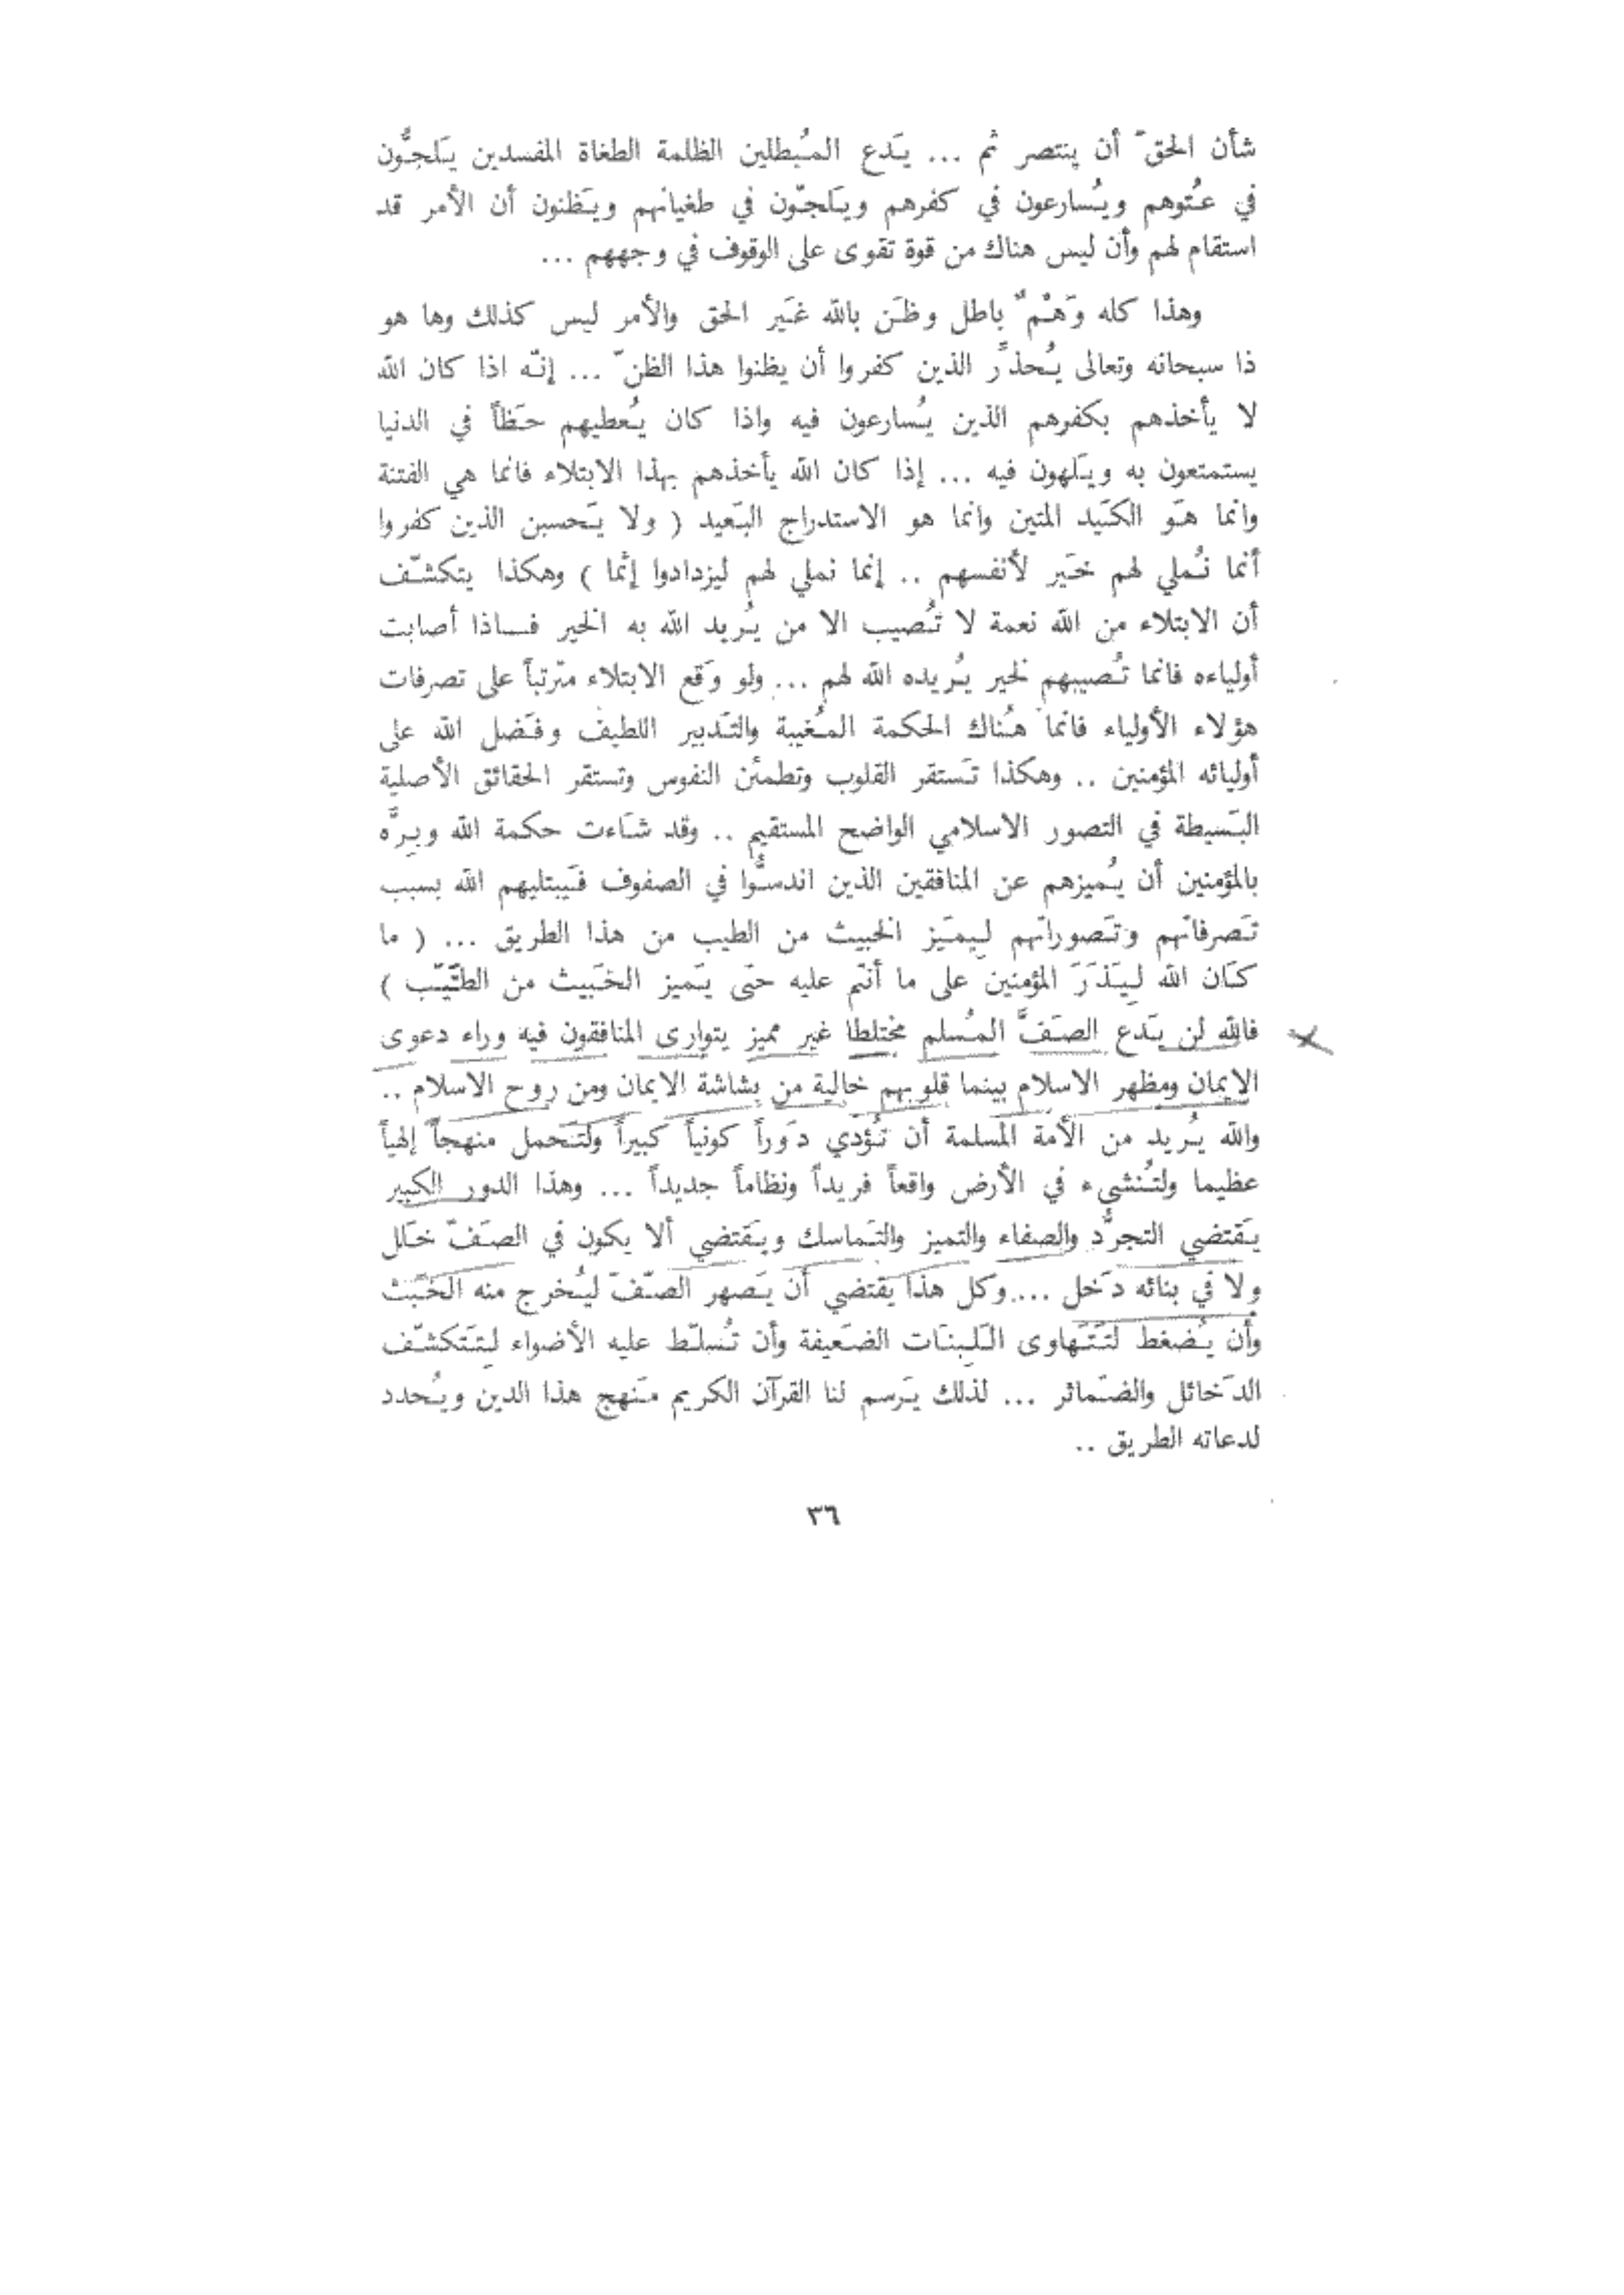 شأن الحقّ أن ينتصر ثم ... يَدع المُبطلين الظلمة الطغاة المفسدين يَلجُّون
في عُتوهم ويُسارعون في كفرهم ويَلجّون في طغيانهم ويَظنون أن الأمر قد
استقام لهم وأن ليس هناك من قوة تقوى على الوقوف في وجههم ...
وهذا كله وَهْمٌ باطل وظَن بالله غَير الحق والأمر ليس كذلك وها هو
ذا سبحانه وتعالى يُحذرَ الذين كفروا أن يظنوا هذا الظنّ ... إنّه اذا كان الله
لا يأخذهم بكفرهم الذين يُسارعون فيه واذا كان يُعطيهم حَظاً في الدنيا
يستمتعون به ويَلهون فيه ... إذا كان الله يأخذهم بهذا الابتلاء فانما هي الفتنة
وانما هَو الكَيد المتين وانما هو الاستدراج البَعيد ( ولا يَحسبن الذين كفروا
أنما نُملي لهم خَير لأنفسهم .. إنما نملي لهم ليزدادوا إثما ) وهكذا يتكشّف
أن الابتلاء من الله نعمة لا تُصيب الا من يُريد الله به الخير فاذا أصابت
أولياءه فانما تُصيبهم لخير يُريده الله لهم ... ولو وَقع الابتلاء مترتباً على تصرفات
هؤلاء الأولياء فانما هُناك الحكمة المُغيبة والتَدبير اللطيف وفَضل الله على
أوليائه المؤمنين .. وهكذا تَستقر القلوب وتطمئن النفوس وتستقر الحقائق الأصلية
البَسيطة في التصور الاسلامي الواضح المستقيم .. وقد شاءت حكمة الله وبِرَّه
بالمؤمنين أن يُميزهم عن المنافقين الذين اندسُّوا في الصفوف فَيبتليهم الله بسبب
تَصرفاتهم وتَصوراتهم لِيمَيز الخبيث من الطيب من هذا الطريق ... ( ما
كَان الله لِيَذَرَ المؤمنين على ما أنتم عليه حتى يَميز الخَبيث من الطَّيّب )
فالله لن يَدع الصَفَّ المُسلم مختلطا غير مميز يتوارى المنافقون فيه وراء دعوى
الايمان ومظهر الاسلام بينما قلوبهم خالية من بشاشة الايمان ومن روح الاسلام ..
والله يُريد من الأمة المسلمة أن تُؤدي دَوراً كونياً كبيراً ولتَحمل منهجاً إلهياً
عظيما ولتُنشيء في الأرض واقعاً فريداً ونظاماً جديداً ... وهذا الدور الكبير
يَقتضي التجرُّد والصفاء والتميز والتَماسك ويَقتضي ألا يكون في الصَفّ خَلل
ولا في بنائه دَخل ... وكل هذا يقتضي أن يَصهر الصّفّ ليُخرج منه الخَبث
وأن يُضغط لتَتَهاوى اللَبِنَات الضَعيفة وأن تُسلّط عليه الأضواء لتَتَكشّف
الدَخائل والضَمائر ... لذلك يَرسم لنا القرآن الكريم مَنهج هذا الدين ويُحدد
لدعاته الطريق ..
٣٦